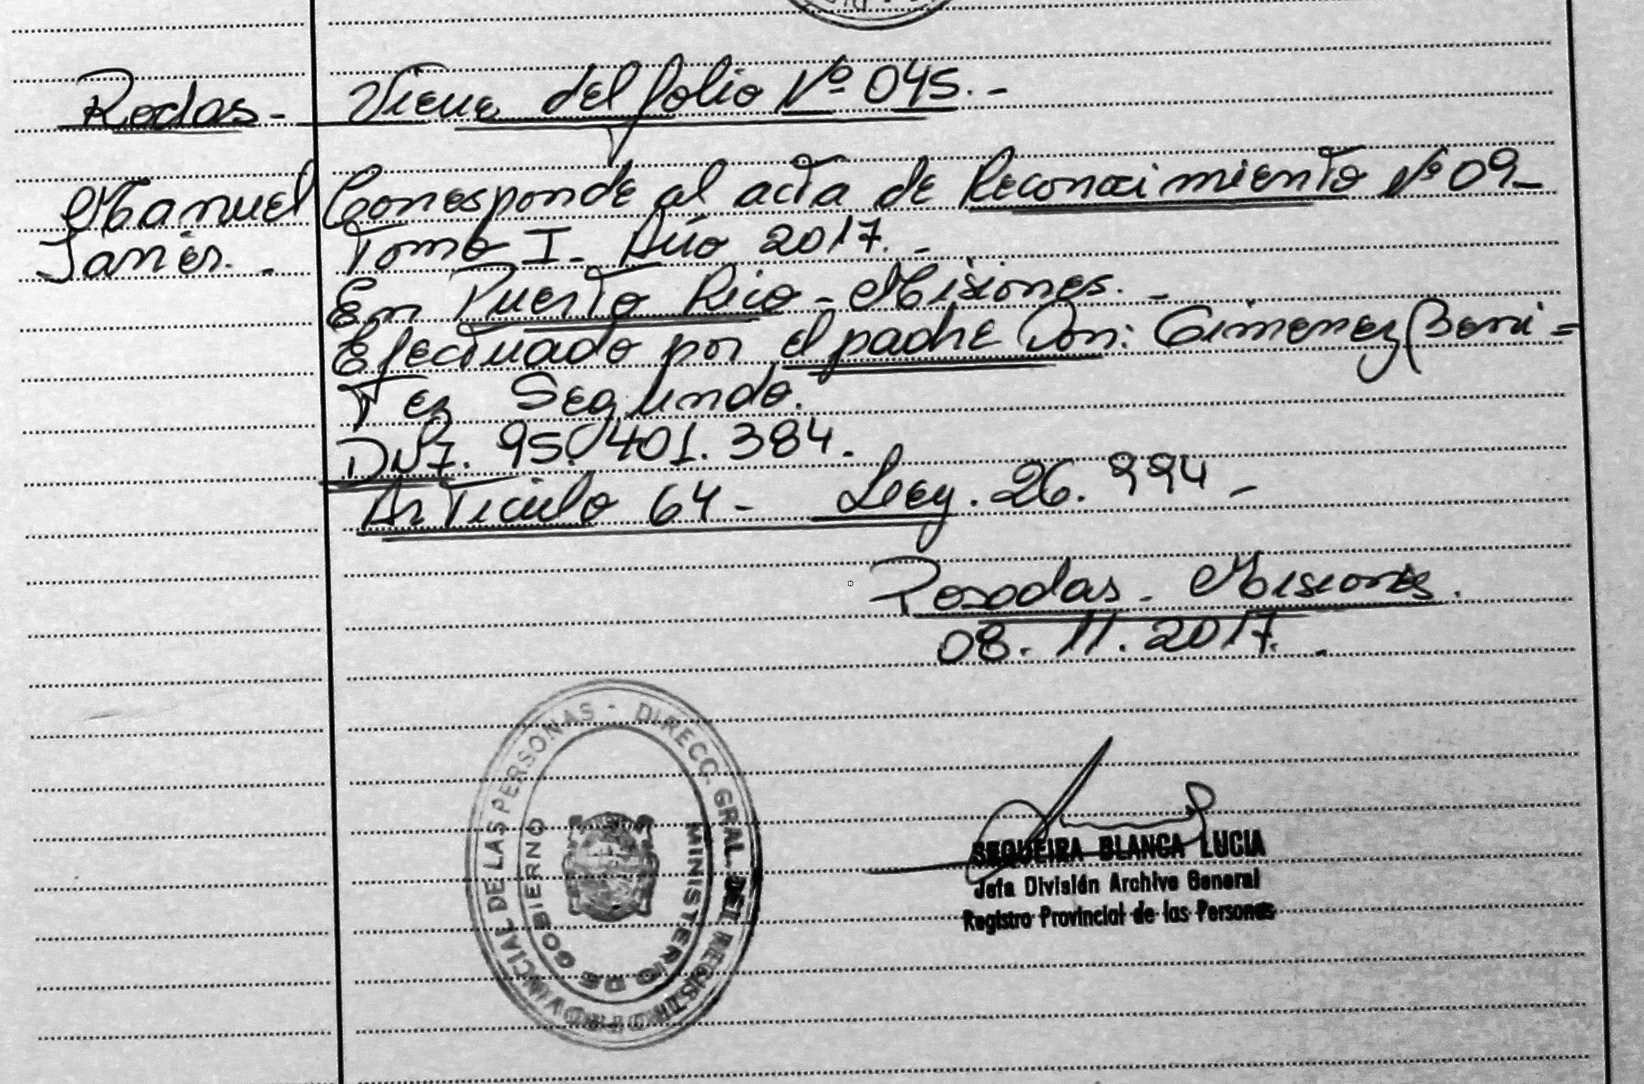 Rodas -
Viene del folio Nº 045. -
Manuel
Janes. -
Corresponde al acta de Reconocimiento Nº 09 -
Tomo I - Año 2017. -
En Puerto Rico - Misiones. -
Efectuado por el padre Don: Gimenez Beni =
Tez Segundo.
DNI. 95.401.384.
Articulo 64 - Ley. 26.994 -
Posadas - Misiones.
08.11.2017. .
DIRECC. GRAL. DEL REGISTRO PROVINCIAL DE LAS PERSONAS -
MINISTERIO DE GOBIERNO
SEQUEIRA BLANCA LUCIA
Jefa División Archivo General
Registro Provincial de las Personas